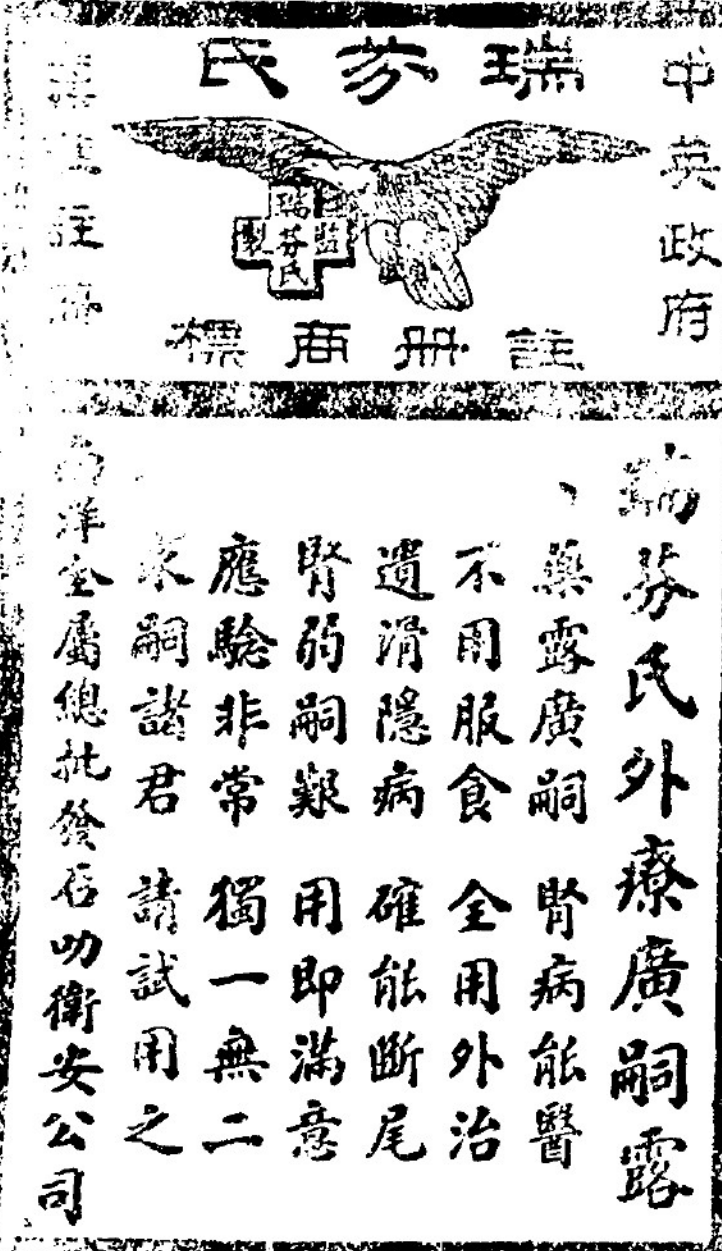 中英政府
瑞芬氏
監製
瑞芬氏
註冊商標
註冊
瑞芬氏外療廣嗣露
藥露廣嗣 腎病能醫
不用服食 全用外治
遺滑隱病 確能斷尾
腎弱嗣艱 用即滿意
應驗非常 獨一無二
求嗣諸君 請試用之
南洋全屬總批發石叻衛安公司